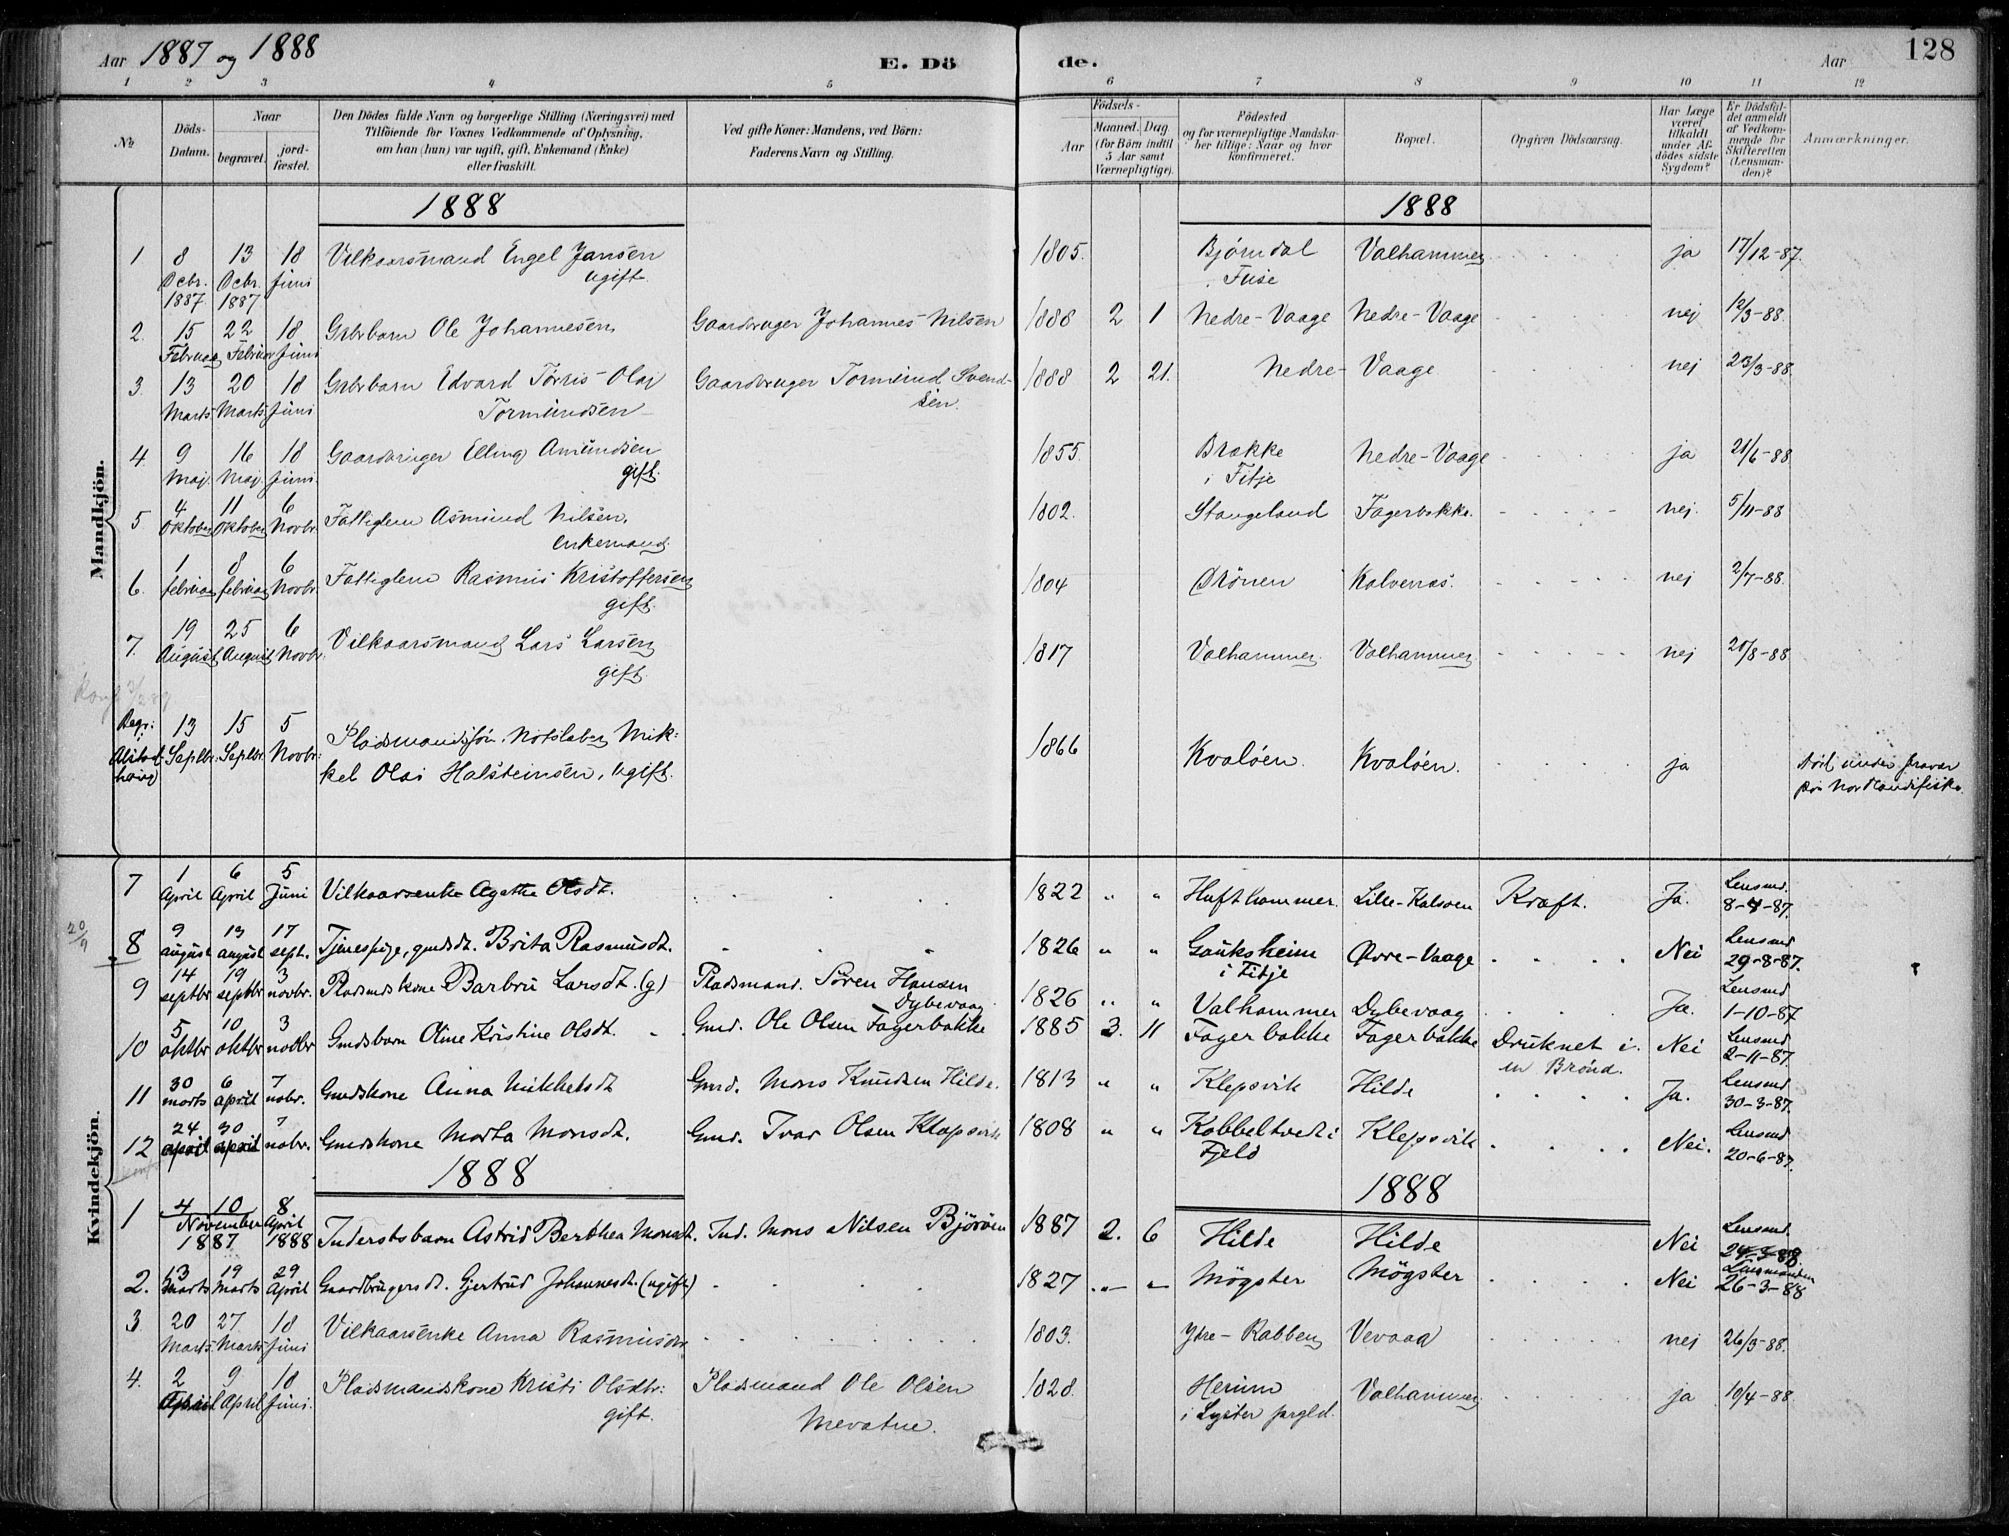 Aar 1887 og 1888 E. Dö de. Aar 128
1 2 3 4 5 6 7 8 9 10 11 12
No Döds-Datum. Naar begravet. jord-fæstet. Den Dödes fulde Navn og borgerlige Stilling (Næringsvei) med Tilföiende for Voxnes Vedkommende af Oplysning, om han (hun) var ugift, gift, Enkemand (Enke) eller fraskilt. Ved gifte Koner: Mandens, ved Börn: Faderens Navn og Stilling. Födsels- Aar Maaned. Dag (for Börn indtil 5 Aar samt Værnepligtige). Födested og for værnepligtige Mandskaber tillige: Naar og hvor konfirmeret. Bopæl. Opgiven Dödsaarsag. Har Læge været tilkaldt under Afdödes sidste Sygdom? Er Dödsfaldet anmeldt af Vedkommende for Skifteretten (Lensmanden)? Anmærkninger.
Mandkjön.
1888 1888
1 8 Decbr. 1887 13 Decbr. 1887 18 Juni Vilkaarsmand Engel Jansen ugift. 1805. Bjørndal i Fuse Valhammer ja 17/12-87.
2. 15 Februar 22 Februar 18 Juni Grbrbarn Ole Johannesen Gaardbruger Johannes Nilsen 1888 2 1 Nedre-Vaage Nedre-Vaage nej 12/3-88.
3. 13 Marts 20 Marts 18 Juni Grbrbarn Edvard Törris Olai Tormundsen Gaardbruger Tormund Svendsen. 1888 2 21. Nedre-Vaage nej 23/3-88.
4. 9 Maj. 16 Maj. 18 Juni. Gaardbruger Elling Amundsen gift. 1855. Brække i Fitje Nedre-Vaage ja 21/6-88
5 4 Oktober 11 Oktober 6 Novbr. Fattiglem Asmund Nilsen. enkemand. 1802. Stangeland Fagerbakke. nej. 5/11-88
6. 1 februar 8 februar 6 Novbr. Fattiglem Rasmus Kristoffersen gift. 1804 Drönen Kalvenæs. nej 2/7-88.
7. 19 August 25 August 6 Novbr. Vilkaarsmand Lars Larsen gift. 1817 Valhammer. Valhammer. nej 20/8-88
Begr: Alstadhaug 13 Septbr. 15 Septbr. 5 Novbr. Pladsmandssön, Notslaber, Mikkel Olai Halsteinsen, ugift. 1866 Kvalöen. Kvalöen. ja död under fravær paa Nordlandsfiske.
Kvindekjön.
7 1 April 6 April 5 Juni Vilkaarsenke Agathe Olsdt. 1822 " " Hufthammer. Lille-Kalsøen Kræft. Ja. Lensmd. 8-4-87.
20/9 8 9 august 13 august 17 sept. Tjenespige, gmdsdt. Brita Rasmusdt. 1826 " " Gauksheim i Fitje Øvre-Vaage Nei Lensmd 29-8-87.
9 14 septbr 19 septbr 3 novbr. Pladsmdskone Barbru Larsdt. (g) Pladsmand. Sören Hansen Dybevaag 1826 " " Valhammer Dybevaag Ja. Lensmd 1-10-87.
10 5 oktbr 10 oktbr 3 novbr Gmdsbarn Oline Kristine Olsdt. Gmd. Ole Olsen Fagerbakke 1885 3. 11 Fagerbakke Fagerbakke Druknet i en Brönd. Nei Lensmd 2-11-87.
11 30 marts 6 april 7 nobr. Gmdskone Anna Mikkelsdt Gmd. Mons Knudsen Hilde. 1813 " " Klepsvik Hilde Ja. Lensmd 30-3-87.
12 24 april 30 april 7 nobr. Gmdskone Marta Monsdt. Gmd. Ivar Olsen Klepsvik 1808 " " Kobbeltvedt i Fjeld Klepsvik Nei. Lensmd 20-6-87.
1888 1888
1 4 10 November 1887 8 April 1888 Inderstsbarn Astrid Berthea Monsdt. Ind. Mons Nilsen Björöen 1887 2. 6 Hilde Hilde Nei Lensmd. 24-3-88
2. 13 Marts 19 Marts 29 April Gaardbrugersdt. Gjertrud Johannesdt. (ugift) 1827 Mögster Mögster Nei Lensmanden 26-3-88
3 20 Marts. 27 Marts 18 Juni Vilkaarsenke Anna Rasmusdtr 1803. Ytre-Rabben Vevaag nej 26/3-88.
4. 2 April 9 April 18 Juni. Pladsmandskone Kristi Olsdtr: gift. Pladsmand Ole Olsen 1828. i Lyster prgld. Valhammer ja 10/4-88.